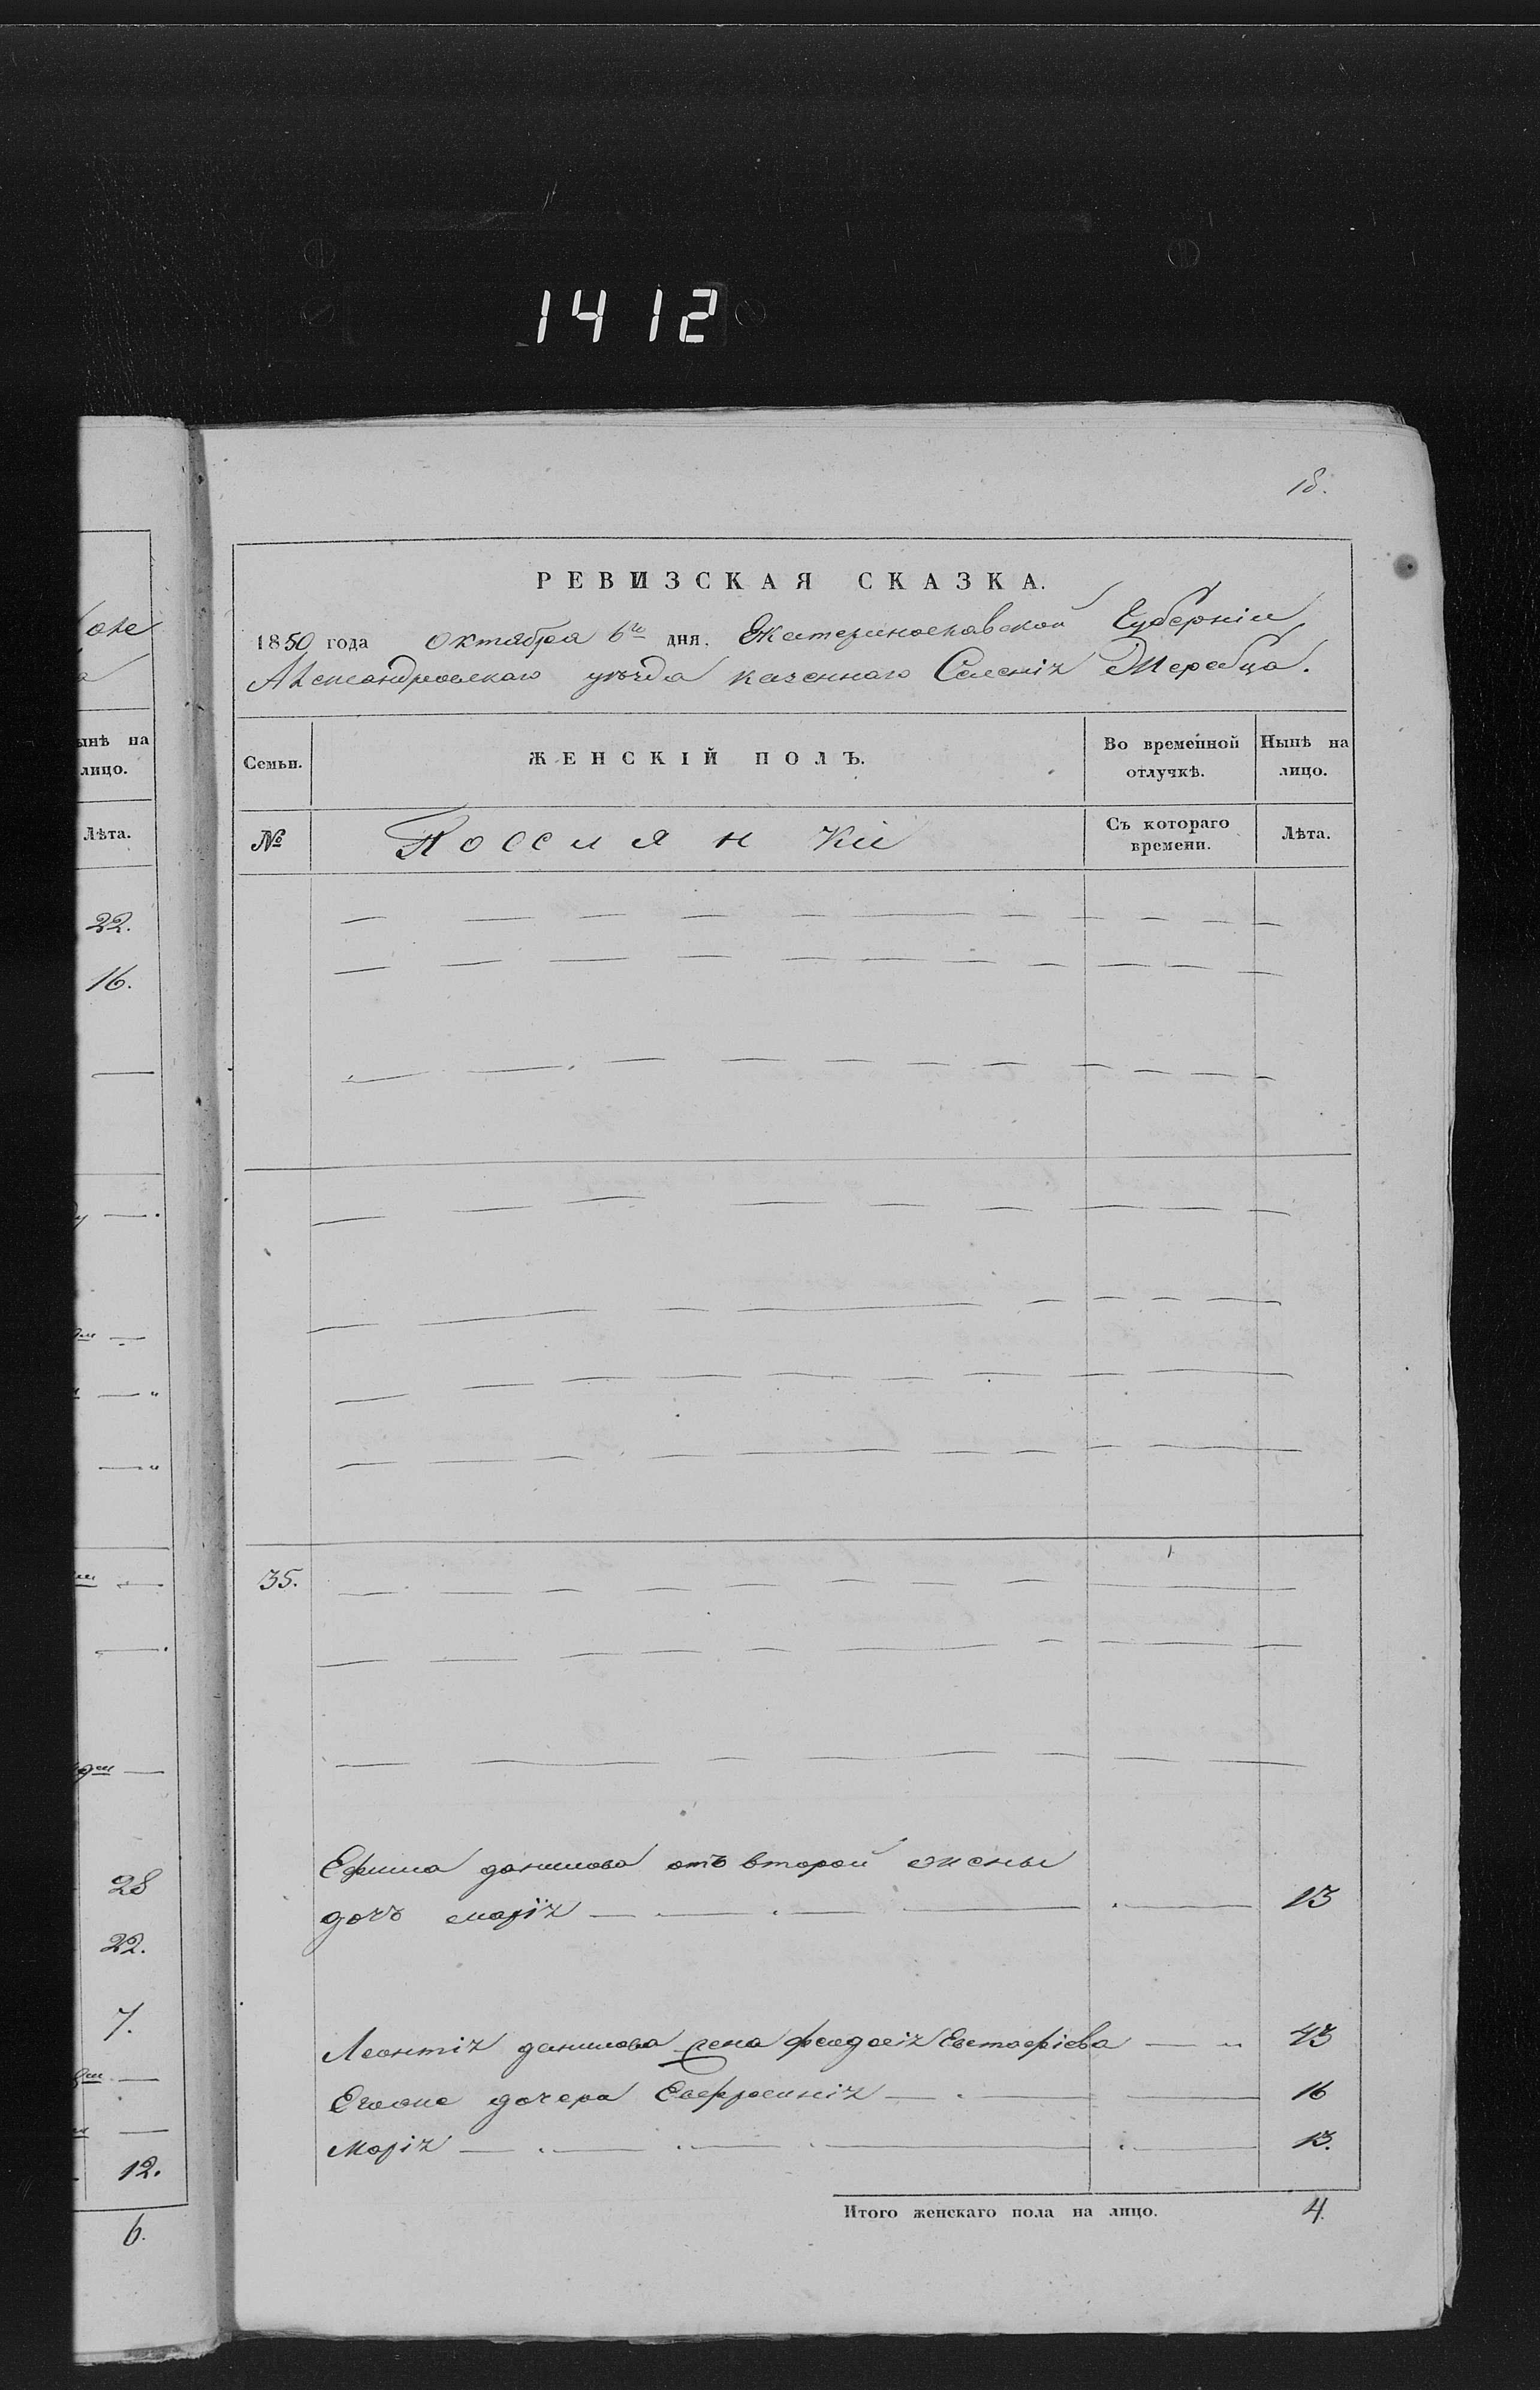 1412
18.
РЕВИЗСКАЯ СКАЗКА.
1850 года октября 6го дня. Екатеринославской Губерніи
Александровскаго уѣзда казеннаго Селенія Жеребца.
оне
ынѣ на
лицо.
Лѣта.
22.
16.
28
22.
7.
12.
6.
Семьи.
ЖЕНСКІЙ ПОЛЪ.
Во временной
отлучкѣ.
Нынѣ на
лицо.
№
Россиянкіи
Съ котораго
времени.
Лѣта.
35.
Ефима данилова отъ второй жены
дочь марія 13
Леонтія данилова жена феодосія Евстафіева 43
Егоже дочера Евфросинія 16
Марія 13.
Итого женскаго пола на лицо. 4.